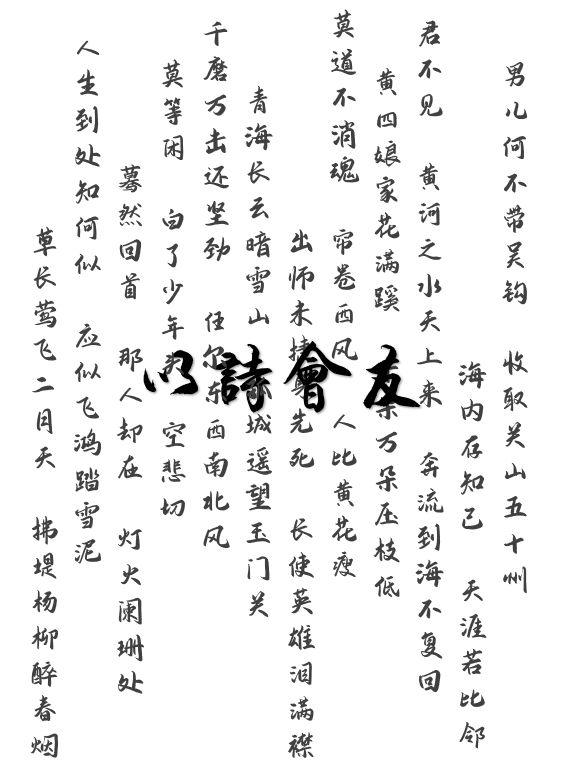 男儿何不带吴钩 收取关山五十州
海内存知己 天涯若比邻
君不见 黄河之水天上来 奔流到海不复回
黄四娘家花满蹊 朵万朵压枝低
莫道不消魂 帘卷西风 人比黄花瘦
出师未捷身先死 长使英雄泪满襟
青海长云暗雪山 城遥望玉门关
千磨万击还坚劲 任尔东西南北风
莫等闲 白了少年头 空悲切
蓦然回首 那人却在 灯火阑珊处
人生到处知何似 应似飞鸿踏雪泥
草长莺飞二月天 拂堤杨柳醉春烟
以詩會友